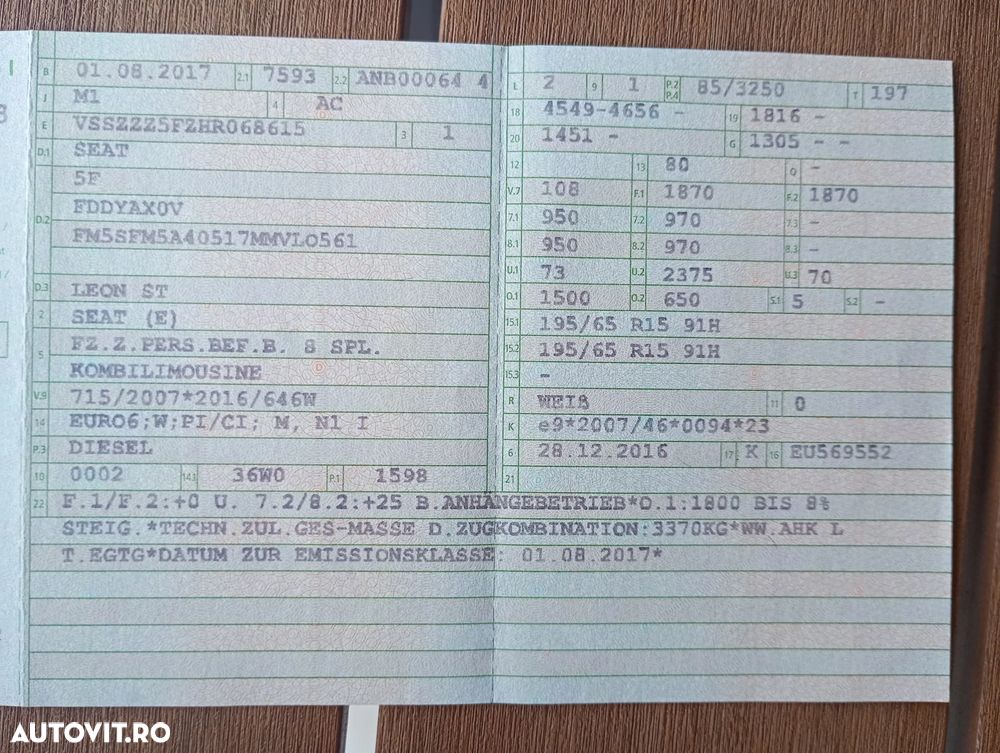 B 01.08.2017 2.1 7593 2.2 ANB00064 4
J M1 4 AC
E VSSZZZ5FZHR068615 3 1
D.1 SEAT
5F
D.2 FDDYAX0V
FM5SFM5A40517MMVLO561
D.3 LEON ST
2 SEAT (E)
5 FZ.Z.PERS.BEF.B. 8 SPL.
KOMBILIMOUSINE
V.9 715/2007*2016/646W
14 EURO6;W;PI/CI; M, N1 I
P.3 DIESEL
10 0002 14.1 36W0 P.1 1598
L 2 9 1 P.2 P.4 85/3250 T 197
18 4549-4656 - 19 1816 -
20 1451 - G 1305 - -
12 13 80 Q -
V.7 108 F.1 1870 F.2 1870
7.1 950 7.2 970 7.3 -
8.1 950 8.2 970 8.3 -
U.1 73 U.2 2375 U.3 70
O.1 1500 O.2 650 S.1 5 S.2 -
15.1 195/65 R15 91H
15.2 195/65 R15 91H
15.3 -
R WEIß 11 0
K e9*2007/46*0094*23
6 28.12.2016 17 K 16 EU569552
21
22 F.1/F.2:+0 U. 7.2/8.2:+25 B.ANHÄNGEBETRIEB*O.1:1800 BIS 8%
STEIG.*TECHN.ZUL.GES-MASSE D.ZUGKOMBINATION:3370KG*WW.AHK L
T.EGTG*DATUM ZUR EMISSIONSKLASSE: 01.08.2017*
AUTOVIT.RO